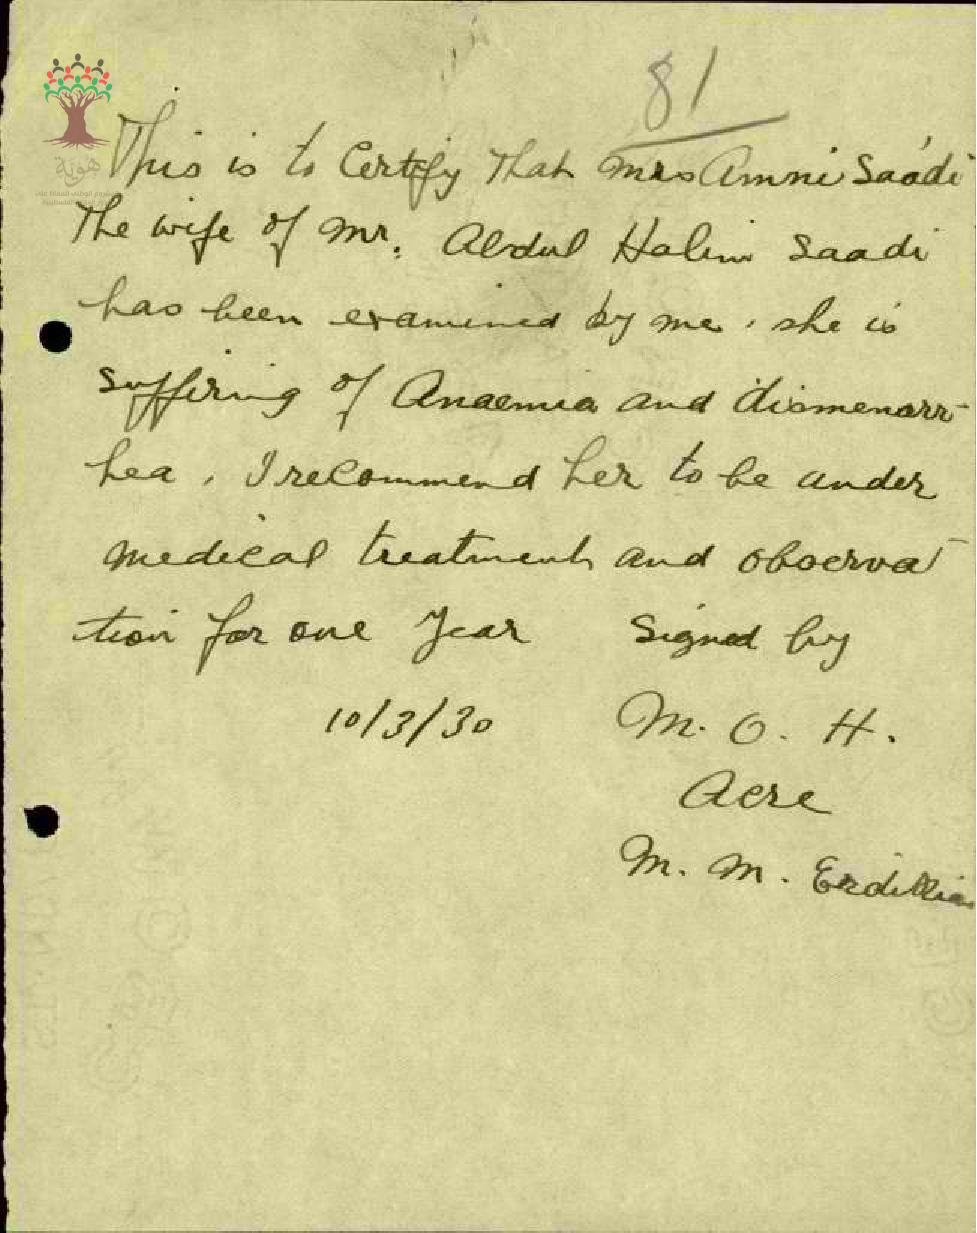 81
This is to Certify That Mrs Amni Saadi
The wife of Mr. Abdul Halim Saadi
has been examined by me. she is
suffiring of Anaemia and dismenarr-
hea. I recommend her to be under
medical treatment and observa-
tion for one Year Signed by
10/3/30 M. O. H.
Acre
M. M.
هوية